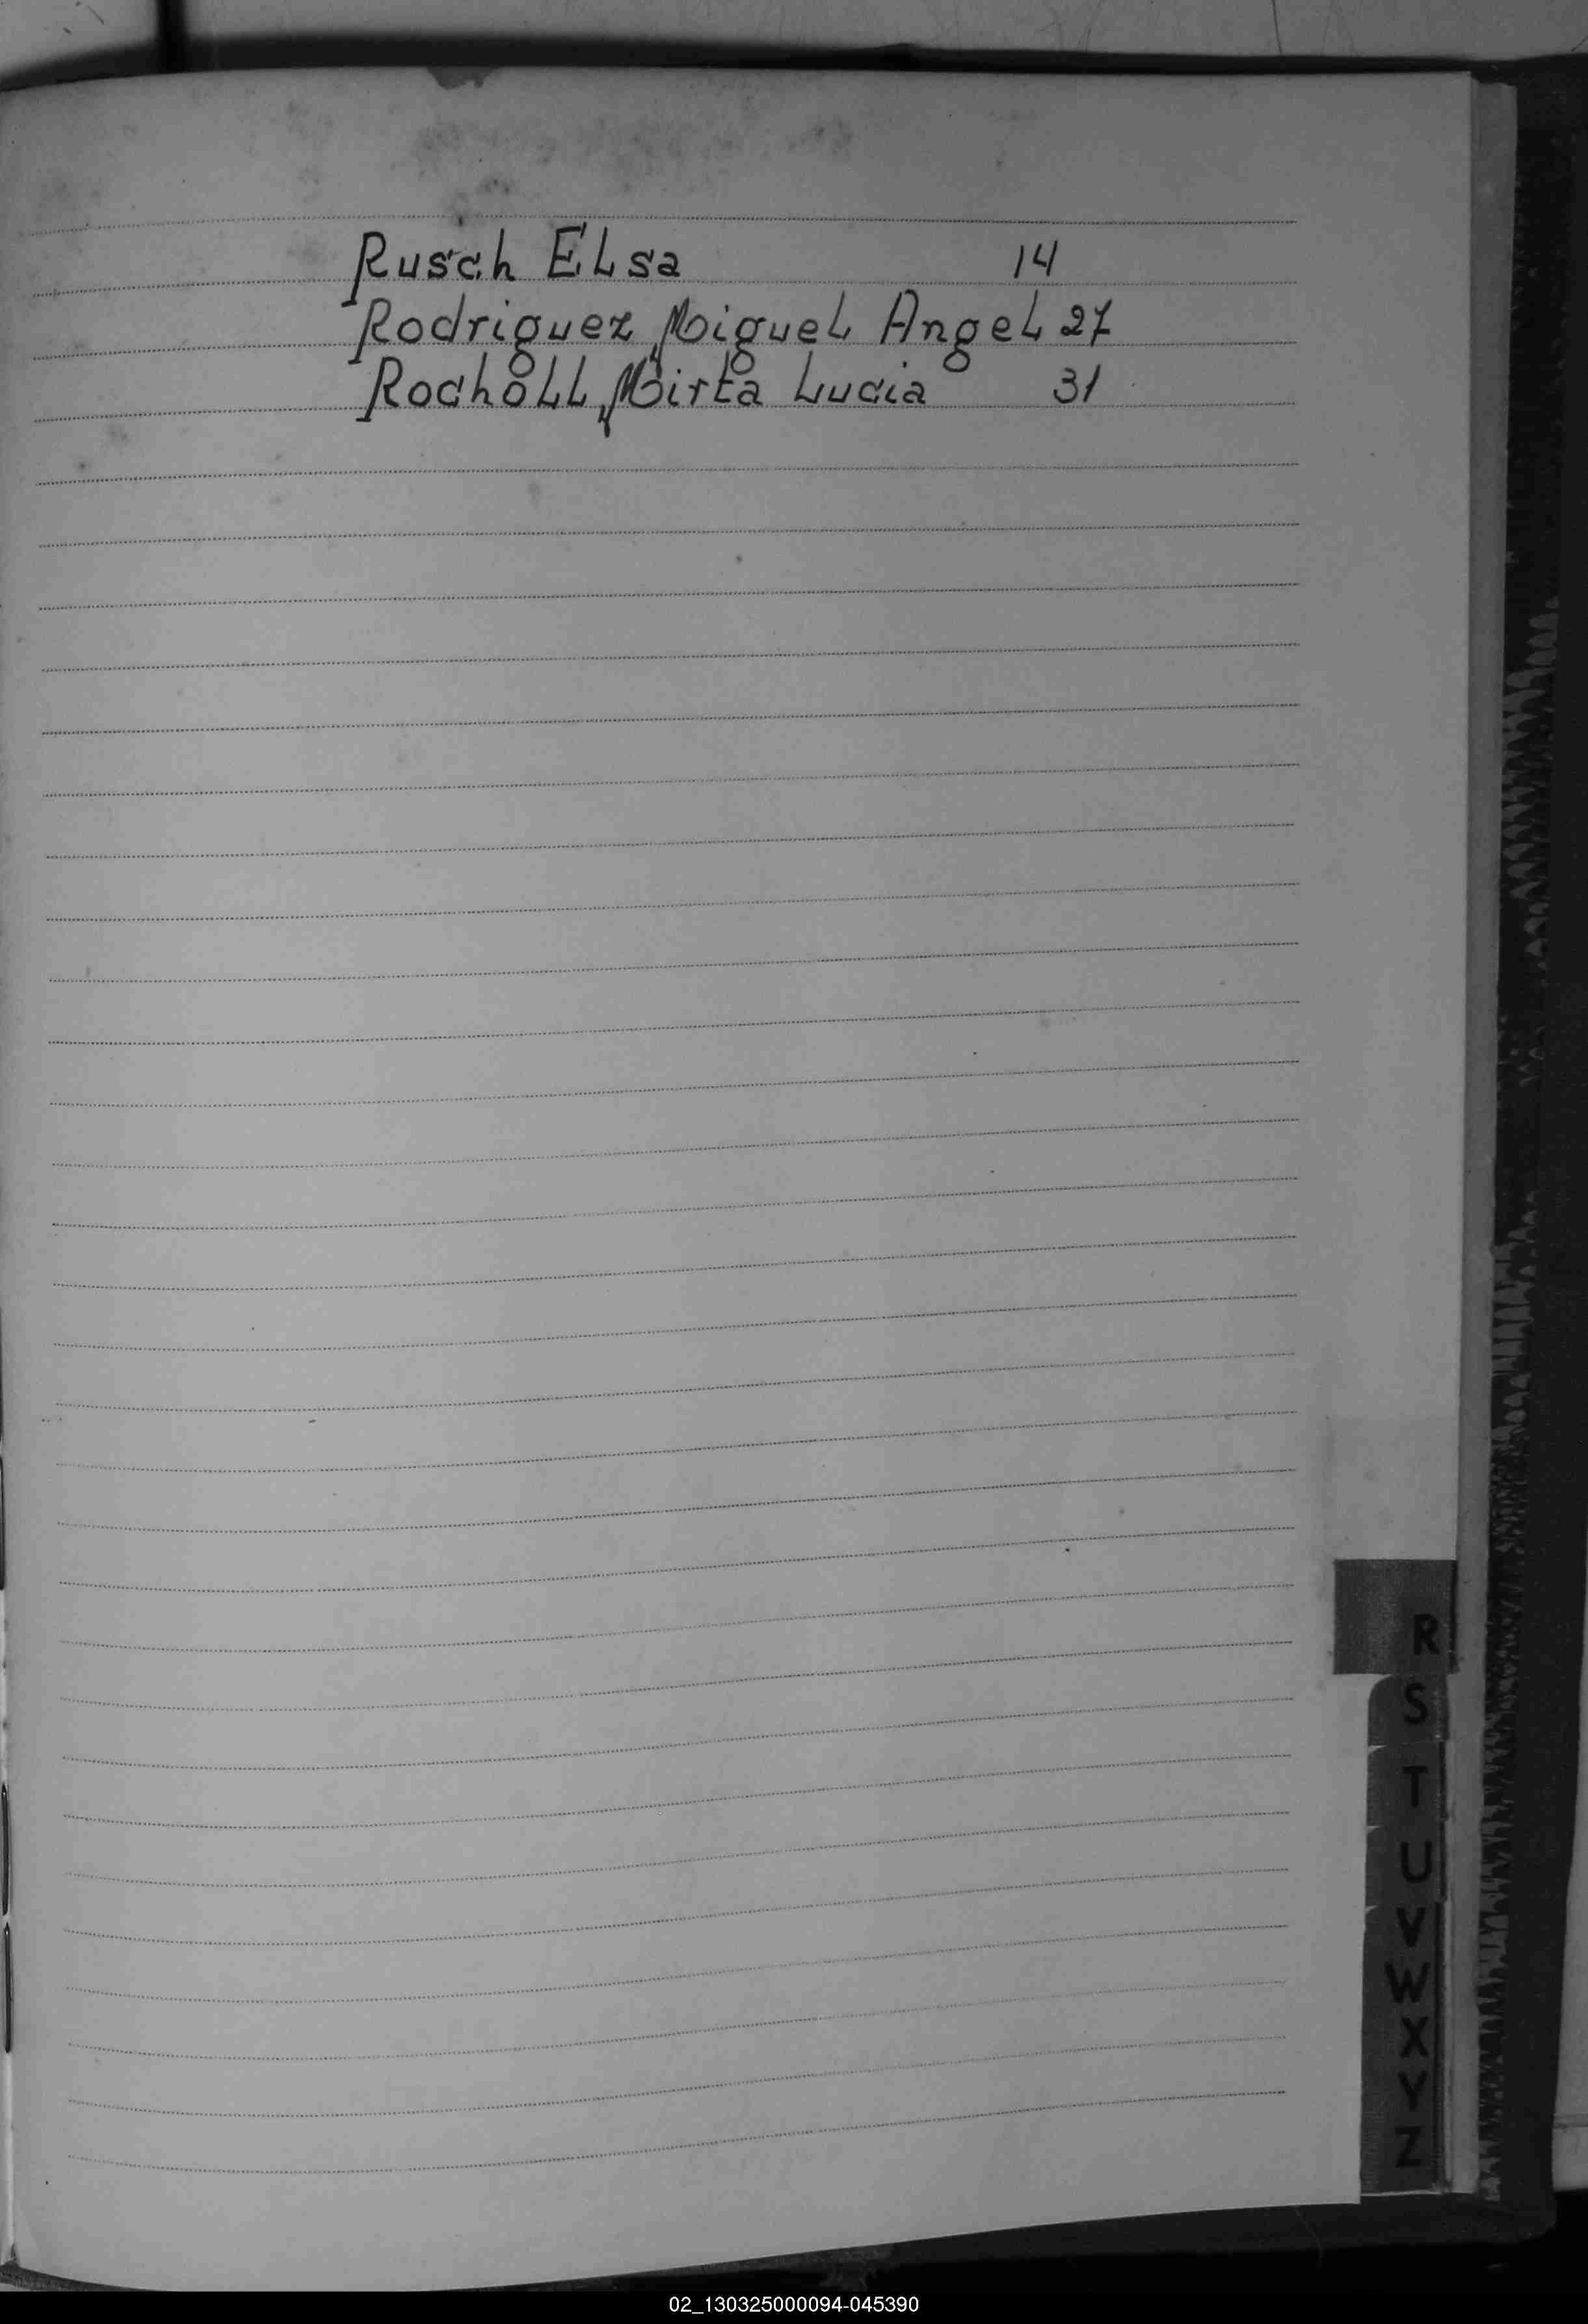 Rusch Elsa 14
Rodriguez, Miguel Angel 27
Rocholl, Mirta Lucia 31
R
S
T
U
V
W
X
Y
Z
02_130325000094-045390